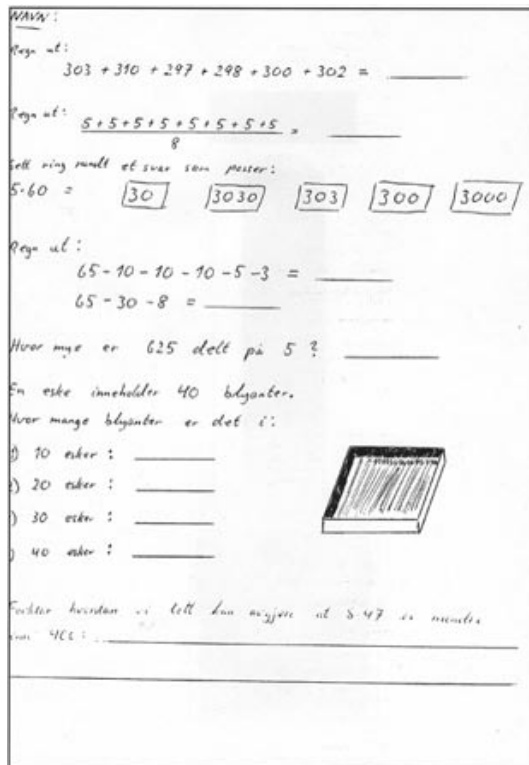 NAVN:
Regn ut:
303 + 310 + 297 + 298 + 300 + 302 =
Regn ut:
5 + 5 + 5 + 5 + 5 + 5 + 5 + 5
8 =
Sett ring rundt et svar som passer:
5·60 = 30 3030 303 300 3000
Regn ut:
65 - 10 - 10 - 10 - 5 - 3 =
65 - 30 - 8 =
Hvor mye er 625 delt på 5 ?
En eske inneholder 40 blyanter.
Hvor mange blyanter er det i:
) 10 esker :
) 20 esker :
) 30 esker :
) 40 esker :
Forklar hvordan vi lett kan avgjøre at 8·47 er mindre
enn